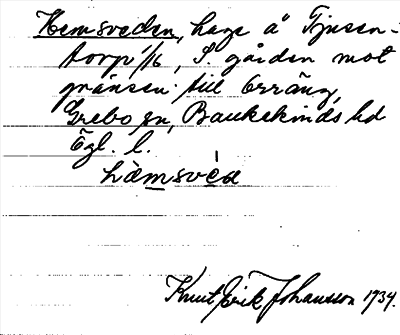 Hemsveden, hage å Tjusen-
torp 1/16, S. gården mot
gränsen till Orräng,
Grebo sn, Bankekinds hd
Ögl. l.
hèmsvéa
Knut Erik Johansson 1934.